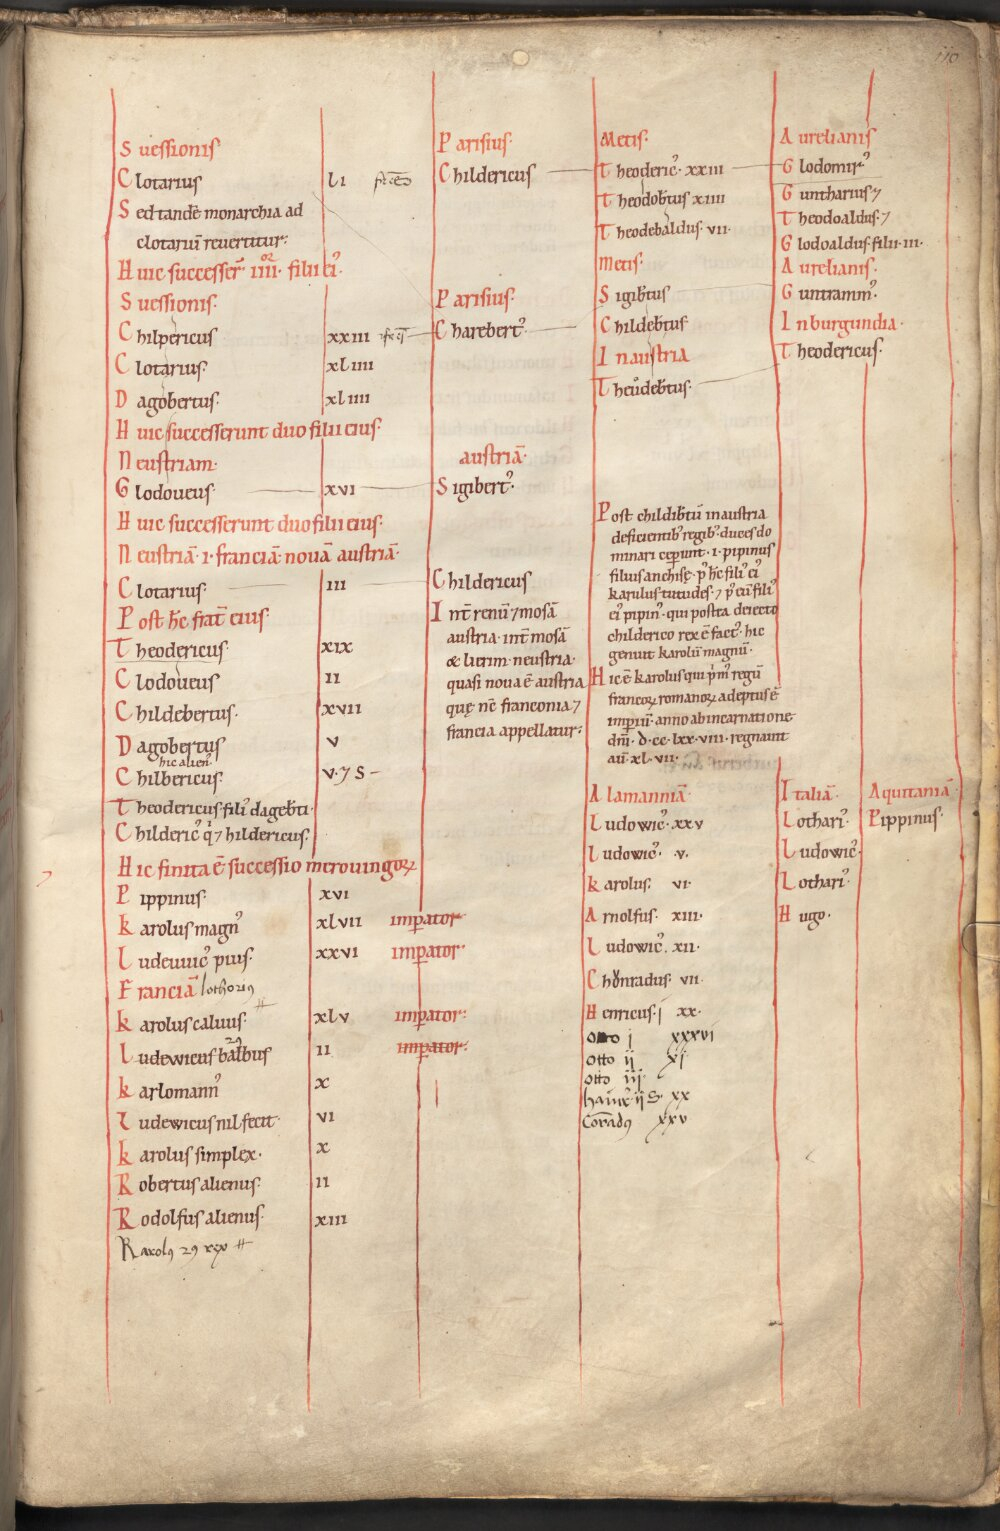 110
Suessionis
Clotarius LI fr̄es
Sed tandē monarchia ad
clotariū reuertitur:
Huic successer̄ IIII filii ei᾽.
Suessionis.
Chilpericus XXIII fr̄s
Clotarius. XLIIII
Dagobertus. XLIIII
Huic successerunt duo filii eius.
Neustriam.
Glodoueus XVI
Huic successerunt duo filii eius.
Neustriā .i. franciā nouā austriā.
Clotarius. III
Post h̄c frat̄ eius.
Theodericus. XIX
Clodoueus II
Childebertus. XVII
Dagobertus V
hic alien᾽
Chilbericus. V. ⁊ S
Theodericus fili᾽ dageb̄ti.
Childeric᾽ q̇ ⁊ hildericus.
Hic finita ē successio merouingoꝝ
Pippinus. XVI
Karolus magn᾽ XLVII imꝑator
Ludeuuic᾽ pius. XXVI imꝑator.
Franciā lothoriꝰ
Karolus caluus. XLV imꝑator:
Ludewicus balbus II imꝑator:
Karlomann᾽ X
Ludewicus nil fecit. VI
Karolus simplex. X
Robertus alienus. II
Rodolfus alienus. XIII
Karolꝰ
Parisius.
Childericus
Parisius.
Charebert᾽
austriā.
Sigibert᾽.
Childericus
Int̄ renū ⁊ mosā
austria. int̄ mosā
& lierim neustria.
quasi noua ē austria
quę n̄c franconia ⁊
francia appellatur:
Metis.
Theoderic᾽. XXIII
Theodob̄tus XIIII
Theodebaldus. VII.
Metis.
Sigib̄tus
Childeb̄tus
In austria
Theudeb̄tus.
Post childib̄tū in austria
deficientib᾽ regib᾽. duces do
minari cęꝑunt .i. pipinus
filius anchisę. p᾽ h̄c fili᾽ ei᾽
karulus tutudes. ⁊ p᾽ eū fili᾽
ei᾽ pipin᾽. qui postea deiecto
childerico rex ē fact᾽. hic
genuit karolū magnū.
Hic ē karolus qui p̍m᾽ regū
francoꝝ romanoꝝ adeptus ē
imꝑiū. anno ab incarnatione
dn̄i. d. cc. lxx. viii. regnauit
an̄. xl. vii.
Alamanniā.
Ludowic᾽. XXV
Ludowic᾽. V.
Karolus. VI.
Arnolfus. XIII.
Ludowic᾽. XII.
Chǒnradus. VII.
Henricus. i XX.
Otto i XXXVI
Otto ii XI
Otto iii
hainr᾽ ii S. XX
Cōradꝰ XXV
Aurelianis
Glodomir᾽
Guntharius ⁊
Theodoaldus. ⁊
Glodoaldus filii. III.
Aurelianis.
Guntramm᾽.
In burgundia.
Theodericus.
Italiā.
Lothari᾽.
Ludowic᾽.
Lothari᾽.
Hugo.
Aquitaniā
Pippinus.